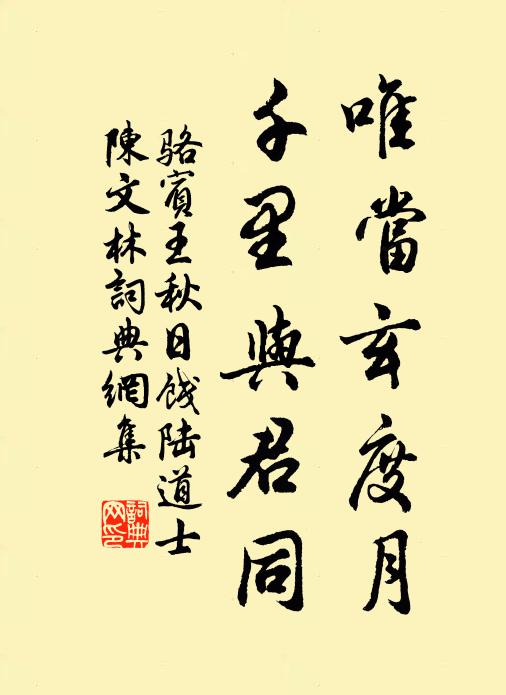 唯當玄度月
千里與君同
駱賓王秋日餞陸道士
陳文林詞典網集
詞典
网印